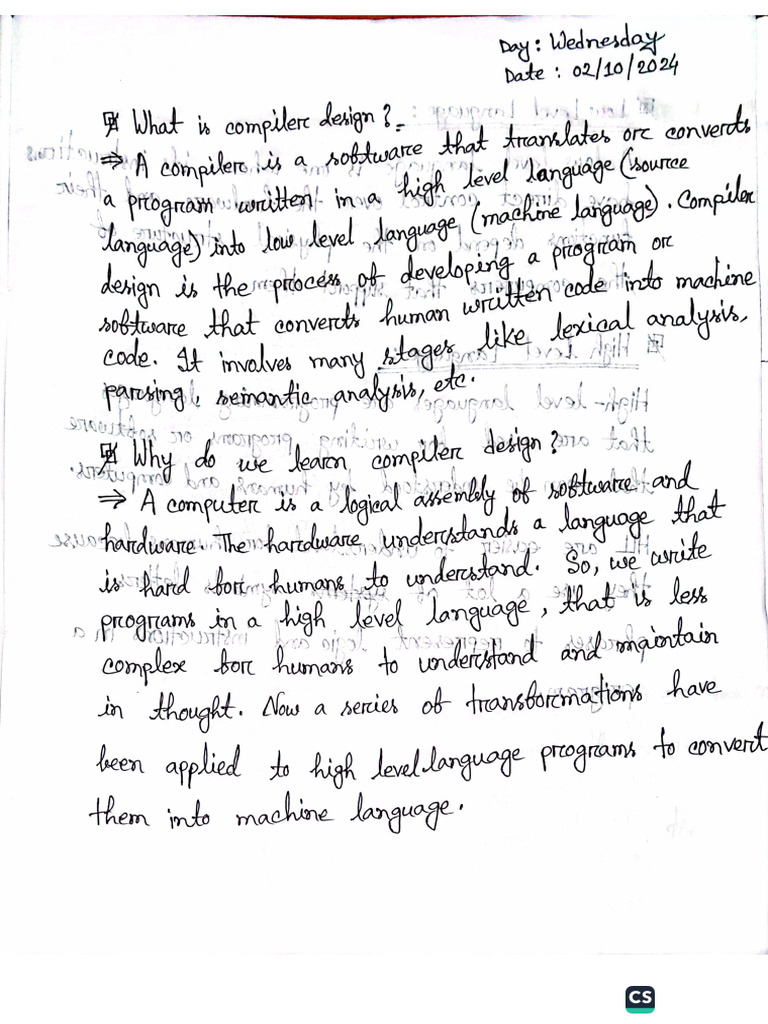 Day: Wednesday
Date: 02/10/2024
What is compiler design?
⇒ A compiler is a software that translates or converts
a program written in a high level language (source
language) into low level language (machine language). Compiler
design is the process of developing a program or
software that converts human written code into machine
code. It involves many stages like lexical analysis,
parsing, semantic analysis, etc.
Why do we learn compiler design?
⇒ A computer is a logical assembly of software and
hardware. The hardware understands a language that
is hard for humans to understand. So, we write
programs in a high level language, that is less
complex for humans to understand and maintain
in thought. Now a series of transformations have
been applied to high level language programs to convert
them into machine language.
CS